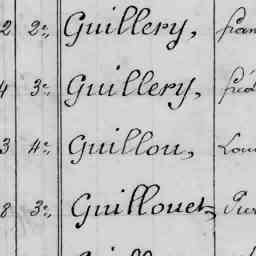 2 2e, Guillery,
4 3e, Guillery,
3 4e, Guillou,
8 3e, Guillouet,